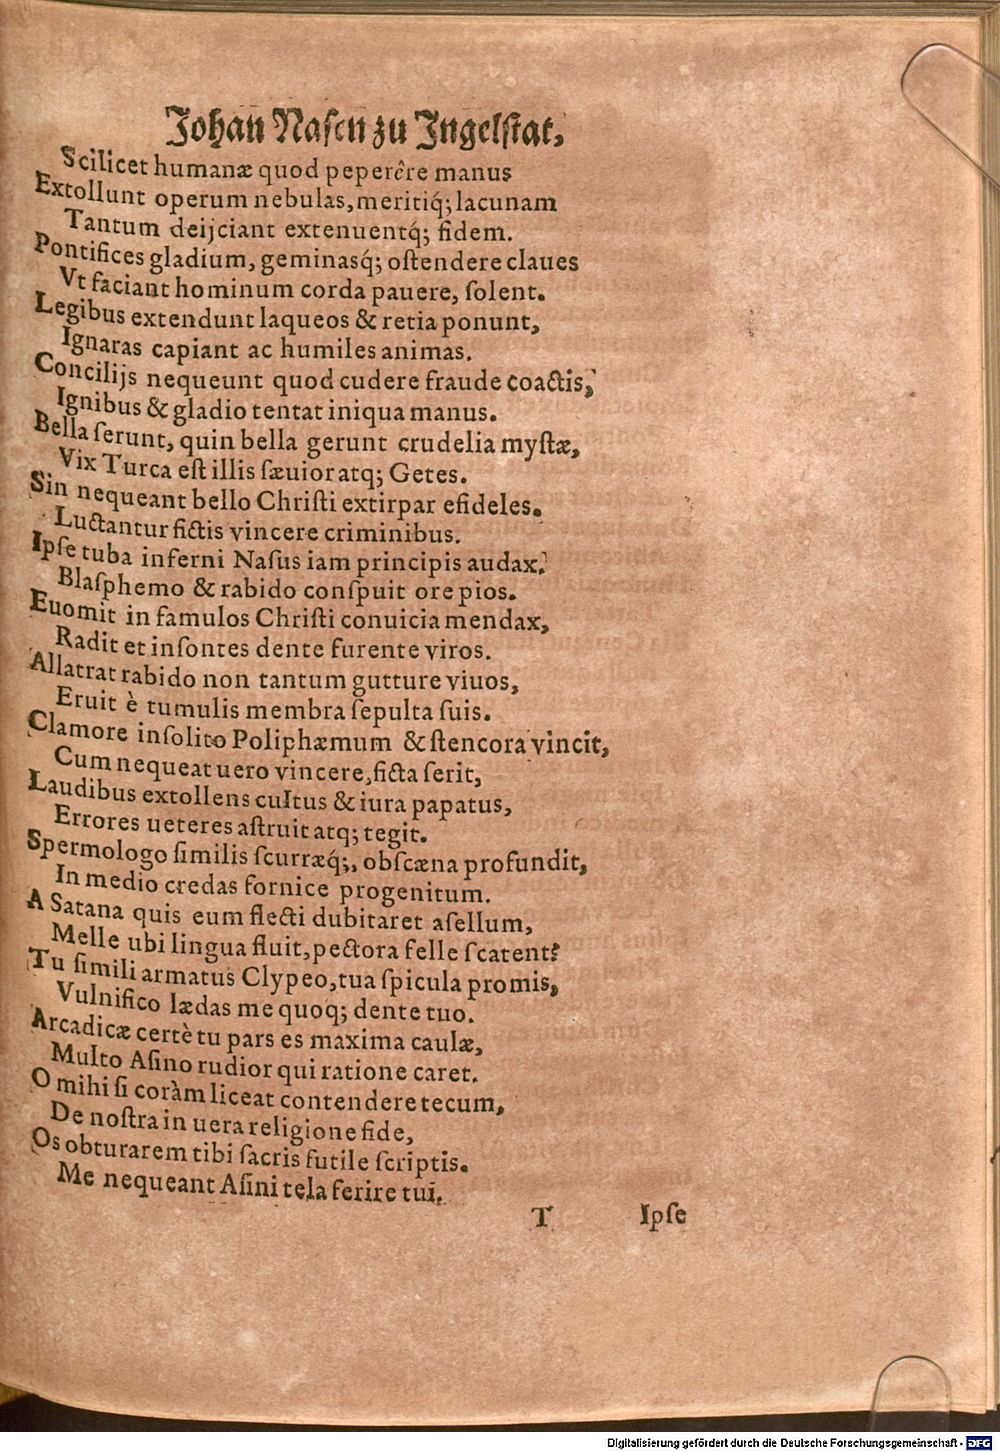 Johan Nasen zu Ingelstat,
Scilicet humanæ quod peperêre manus
Extollunt operum nebulas, meritiq́; lacunam
Tantum deijciant extenuentq́; fidem.
Pontifices gladium, geminasq́; oſtendere claues
Vt faciant hominum corda pauere, ſolent.
Legibus extendunt laqueos & retia ponunt,
Ignaras capiant ac humiles animas.
Concilijs nequeunt quod cudere fraude coactis,
Ignibus & gladio tentat iniqua manus.
Bella ſerunt, quin bella gerunt crudelia myſtæ,
Vix Turca eſt illis ſæuior atq; Getes.
Sin nequeant bello Chriſti extirpar efideles.
Luctantur fictis vincere criminibus.
Ipſe tuba inferni Naſus iam principis audax.
Blaſphemo & rabido conſpuit ore pios.
Euomit in famulos Chriſti conuicia mendax,
Radit et inſontes dente furente viros.
Allatrat rabido non tantum gutture viuos,
Eruit è tumulis membra ſepulta ſuis.
Clamore inſolito Poliphæmum & ſtencora vincit,
Cum nequeat uero vincere, ficta ſerit,
Laudibus extollens cultus & iura papatus,
Errores ueteres aſtruit atq; tegit.
Spermologo ſimilis ſcurræq́;, obſcæna profundit,
In medio credas fornice progenitum.
A Satana quis eum flecti dubitaret aſellum,
Melle ubi lingua fluit, pectora felle ſcatent?
Tu ſimili armatus Clypeo, tua ſpicula promis,
Vulnifico lædas me quoq; dente tuo.
Arcadicæ certè tu pars es maxima caulæ,
Multo Aſino rudior qui ratione caret.
O mihi ſi coràm liceat contendere tecum,
De noſtra in uera religione fide,
Os obturarem tibi ſacris futile ſcriptis.
Me nequeant Aſini tela ferire tui.
T Ipſe
Digitalisierung gefördert durch die Deutsche Forschungsgemeinschaft - DFG